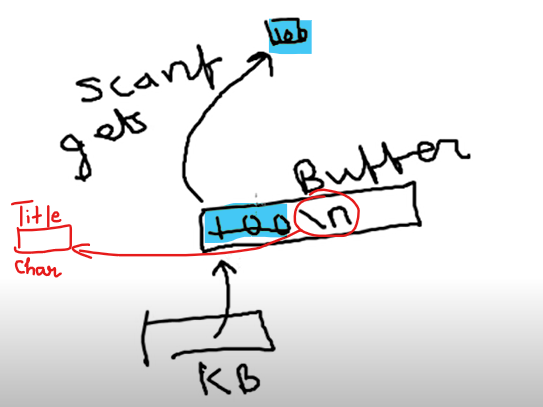 100
scanf
gets
Buffer
100 \n
Title
char
KB